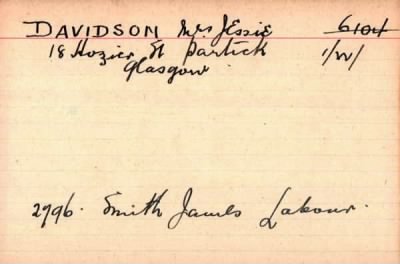 DAVIDSON Mrs JESSIE 6104
18 Hozier St Partick
Glasgow
2796. Smith James Labour.